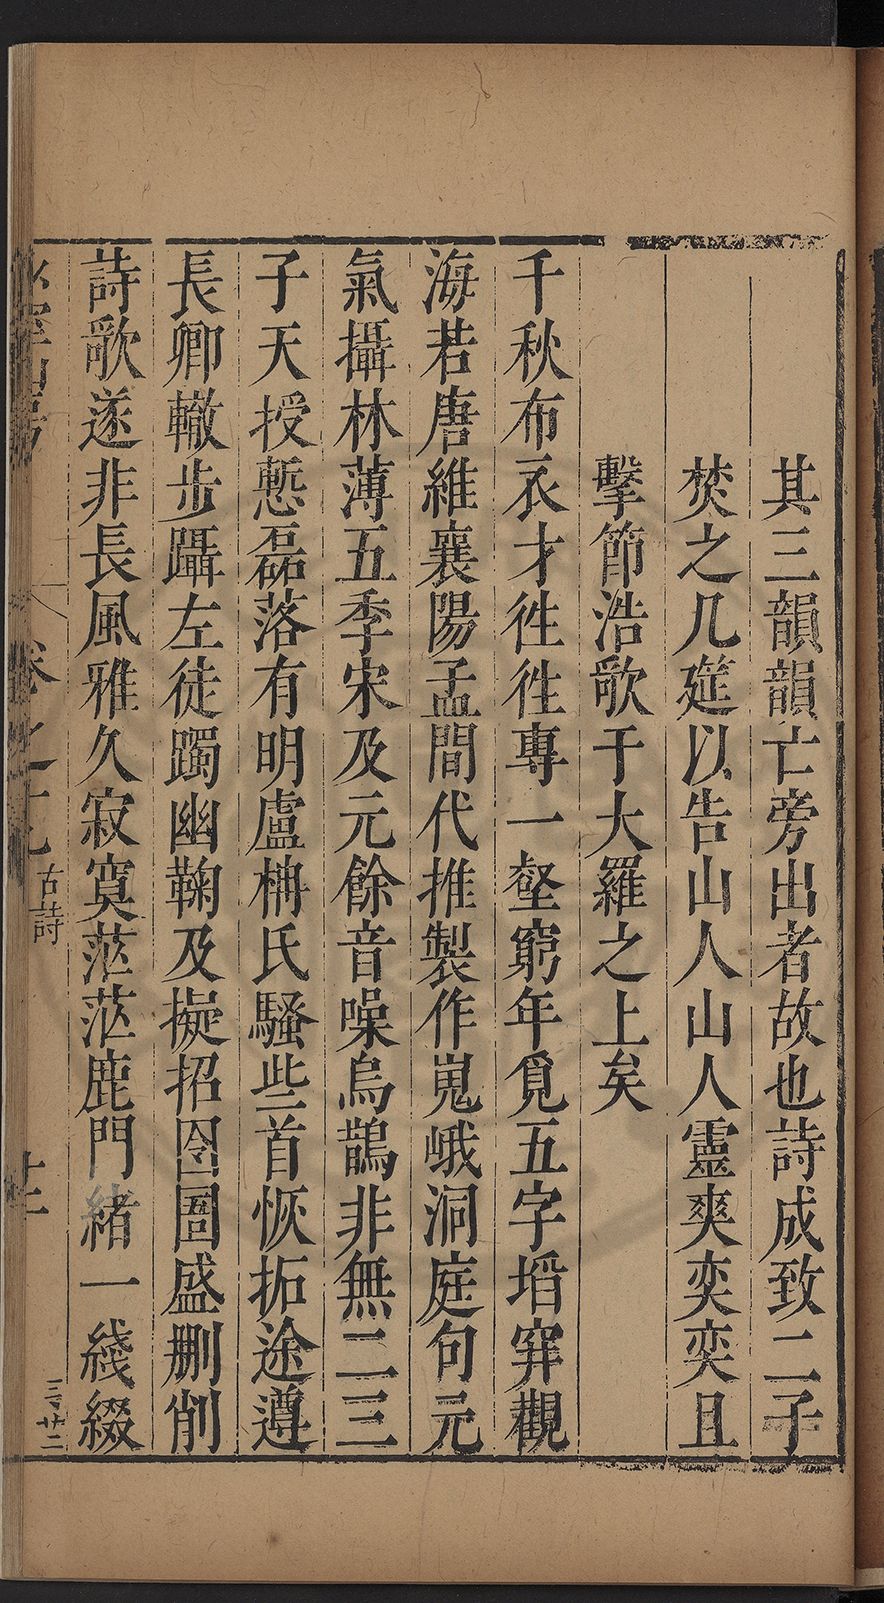 其三韻韻亡旁出者故也詩成致二子
焚之几筵以告山人山人靈爽奕奕且
擊節浩歌于大羅之上矣
千秋布衣才徃徃專一壑窮年覓五字堦穽觀
海若唐維襄陽孟間代推製作嵬峨洞庭句元
氣攝林薄五季宋及元餘音噪烏鵲非無二三
子天授慙磊落有明盧柟氏騷些首恢拓途遵
長卿轍步躡左徒躅幽鞠及擬招囹圄盛刪削
詩歌遂非長風雅久寂寞茫茫鹿門緒一綫綴
卷之十九
古詩
廿二
三廿二